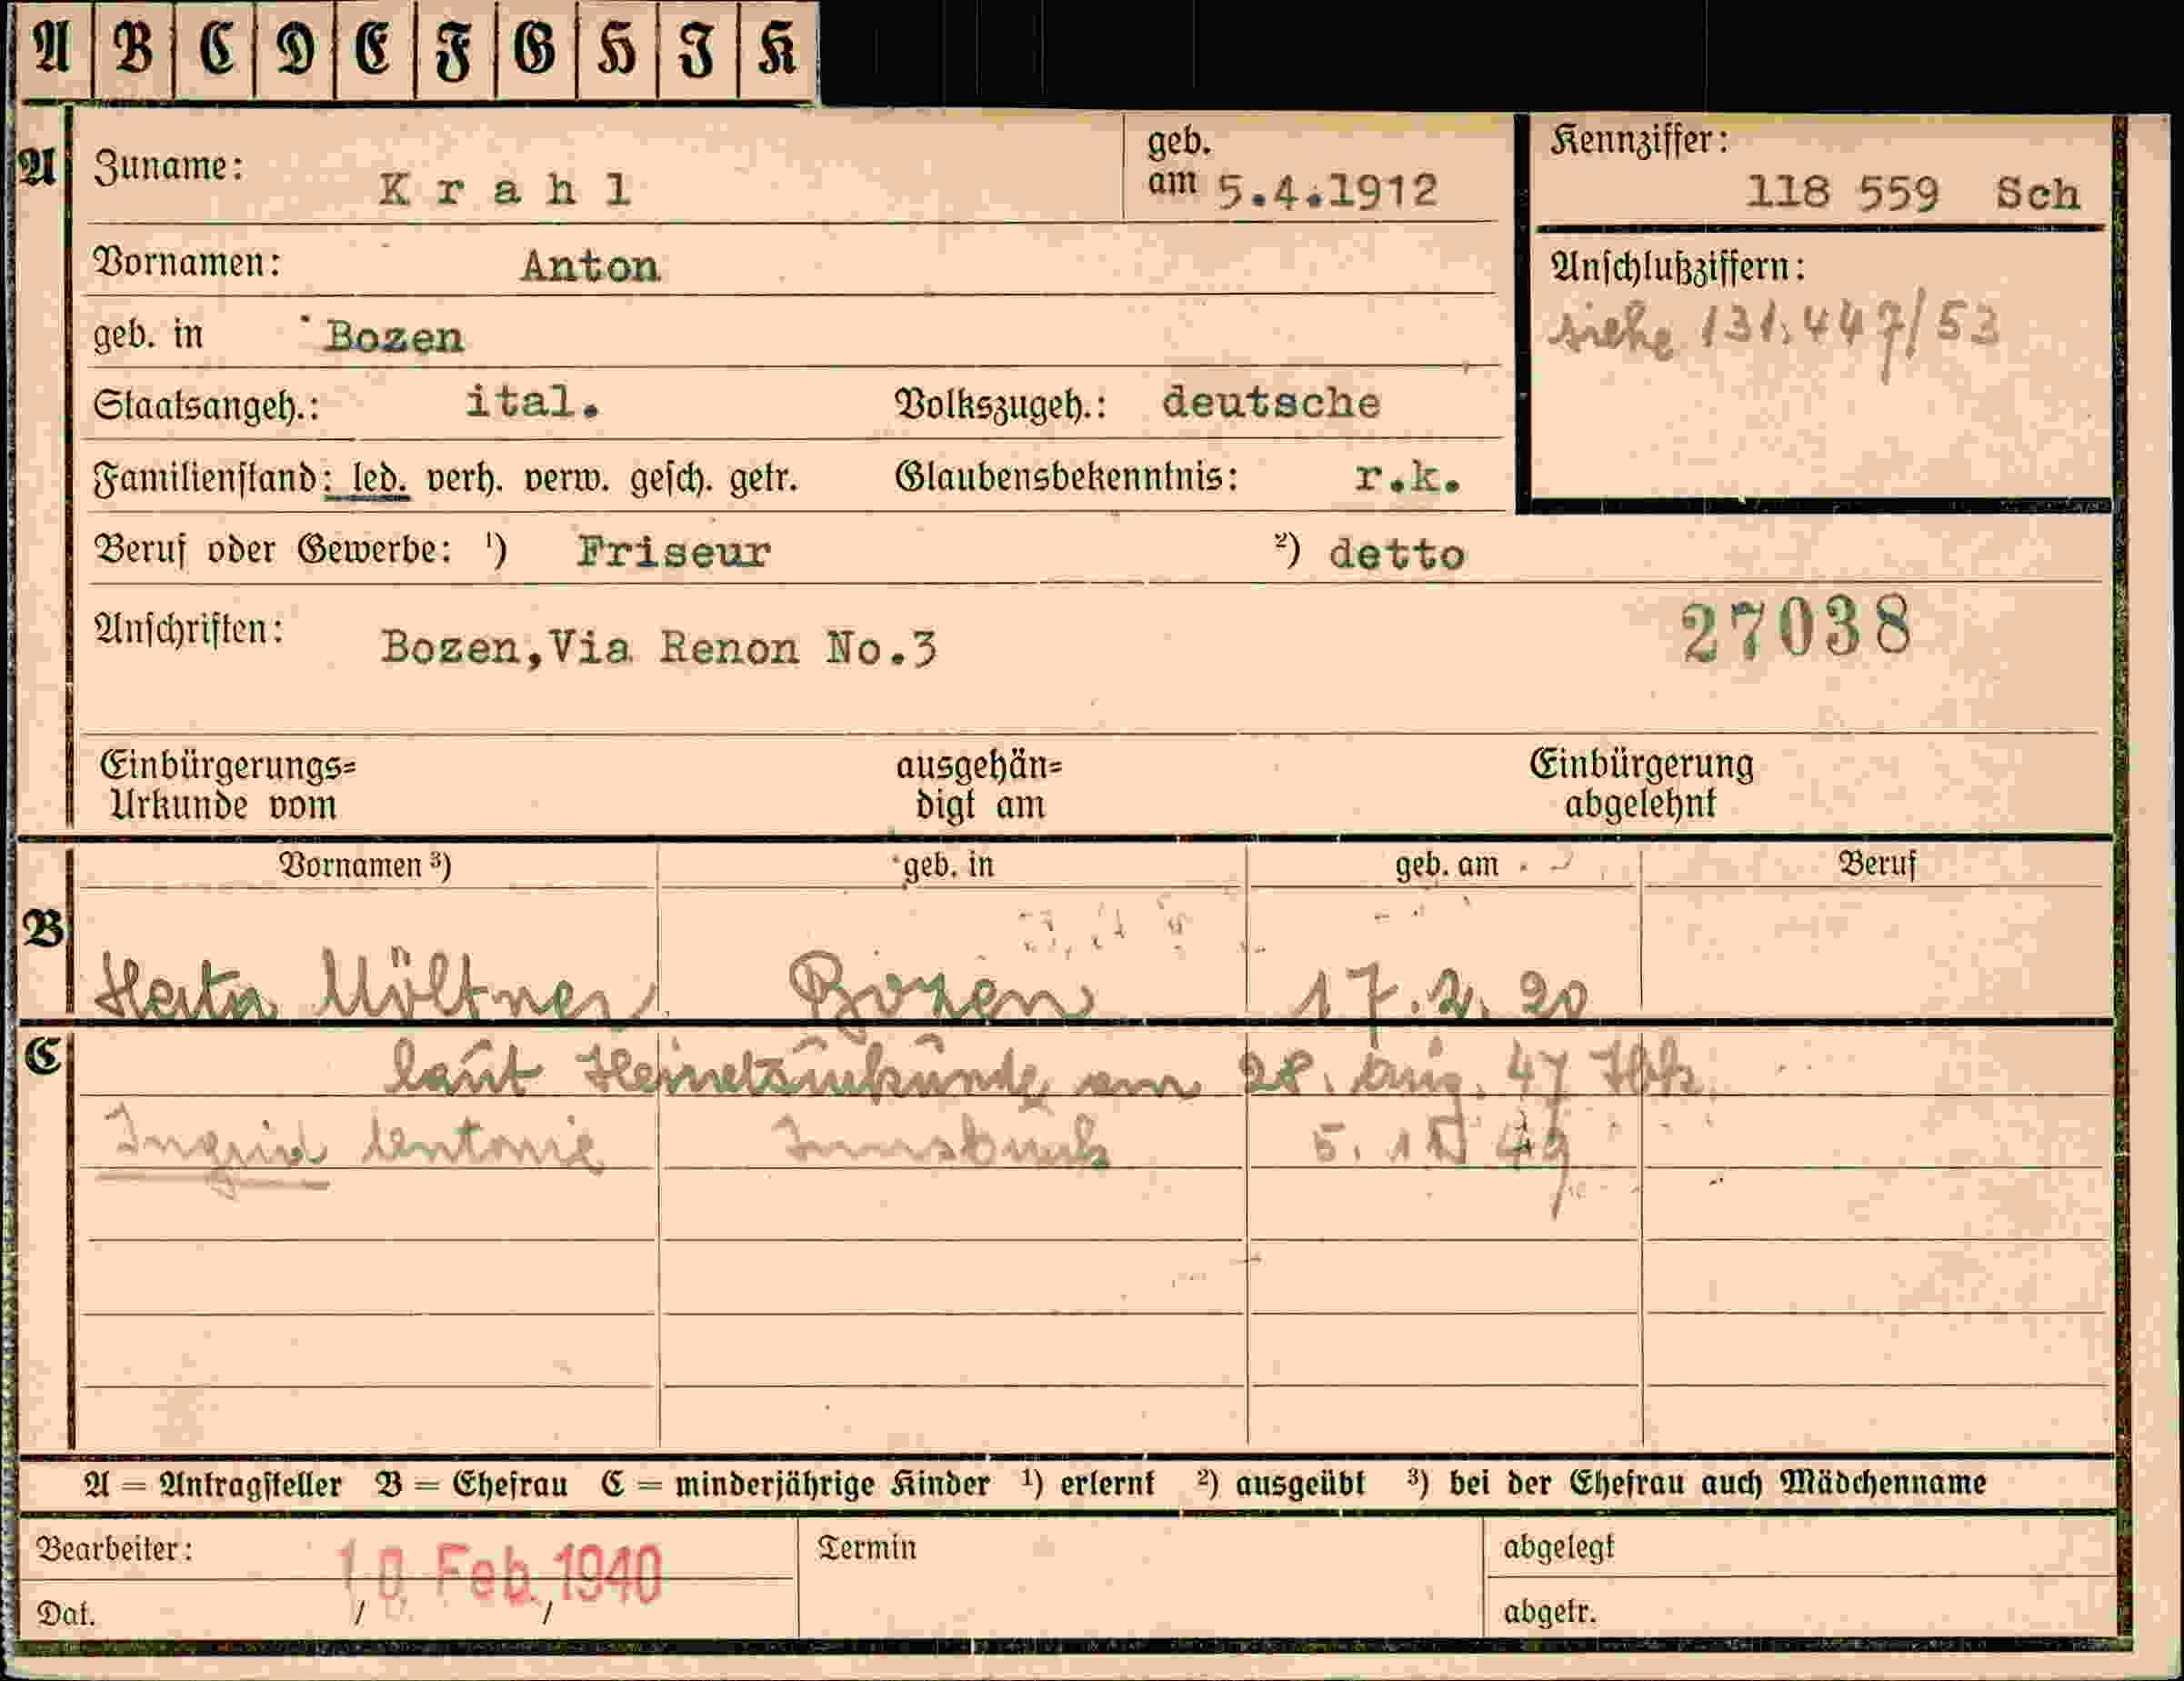 A B C D E F G H J K
A Zuname: Krahl geb. am 5.4.1912 Kennziffer: 118 559 Sch
Vornamen: Anton Anschlußziffern:
siehe 131.447/53
geb. in Bozen
Staatsangeh.: ital. Volkszugeh.: deutsche
Familienstand: led. verh. verw. gesch. getr. Glaubensbekenntnis: r.k.
Beruf oder Gewerbe: ¹) Friseur ²) detto
Anschriften: Bozen,Via Renon No.3 27038
Einbürgerungs= ausgehän= Einbürgerung
Urkunde vom digt am abgelehnt
Vornamen ³) geb. in geb. am Beruf
B Herta Möltner Bozen 17.2.20
C laut am 28. Aug. 47 Ibk.
Ingrid Antonie Innsbruck 5. 49
A = Antragsteller B = Ehefrau C = minderjährige Kinder ¹) erlernt ²) ausgeübt ³) bei der Ehefrau auch Mädchenname
Bearbeiter: 10. Feb. 1940 Termin abgelegt
Dat. / / abgetr.